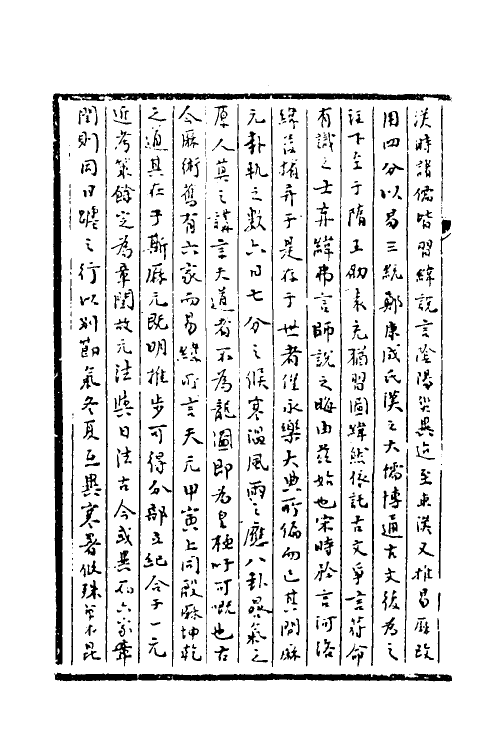 漢時諸儒皆習緯說言陰陽災異迄至東漢又推易厤改
用四分以易三統鄭康成氏漢之大儒博通古文後為之
注下至于隋王劭袁充猶習圖緯然依託古文爭言符命
有識之士弃緯弗言師說之晦由茲始也宋時於言河洛
緯益捐弃于是存于世者僅永樂大典所編而已其間厤
元卦軌之數六日七分之候寒溫風雨之應八卦晷氣之
原人莫之講言天道者不為龍圖即為皇極吁可慨也古
今厤術舊有六家而易緯所言天元甲寅上同殷厤坤乾
之道其在于斯厤元既明推步可得分部立紀合于一元
近考策餘定為章閏故元法與日法古今或異而六家章
閏則同日躔之行以別勘氣冬夏互異寒暑攸殊曾不昆